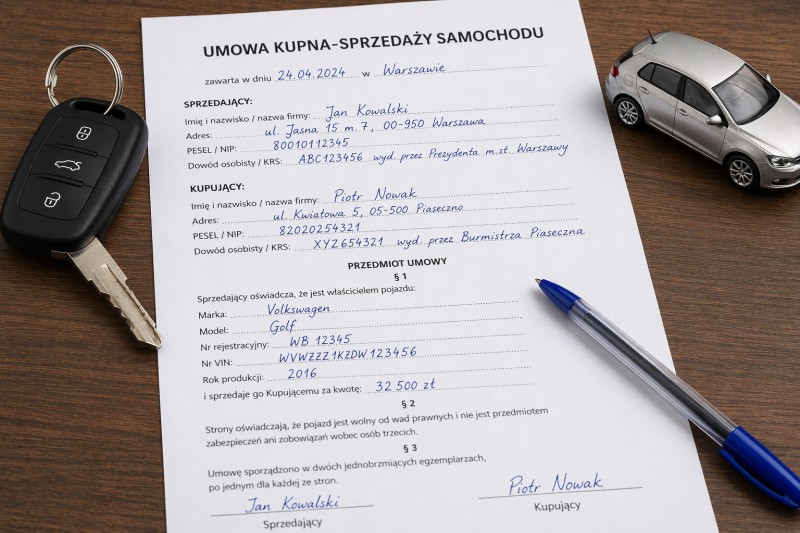 UMOWA KUPNA-SPRZEDAŻY SAMOCHODU
zawarta w dniu 24.04.2024 w Warszawie
SPRZEDAJĄCY:
Imię i nazwisko / nazwa firmy: Jan Kowalski
Adres: ul. Jasna 15 m. 7, 00-950 Warszawa
PESEL / NIP: 80010112345
Dowód osobisty / KRS: ABC123456 wyd. przez Prezydenta m.st. Warszawy
KUPUJĄCY:
Imię i nazwisko / nazwa firmy: Piotr Nowak
Adres: ul. Kwiatowa 5, 05-500 Piaseczno
PESEL / NIP: 82020254321
Dowód osobisty / KRS: XYZ654321 wyd. przez Burmistrza Piaseczna
PRZEDMIOT UMOWY
§ 1
Sprzedający oświadcza, że jest właścicielem pojazdu:
Marka: Volkswagen
Model: Golf
Nr rejestracyjny: WB 12345
Nr VIN: WVWZZZ1KZDW123456
Rok produkcji: 2016
i sprzedaje go Kupującemu za kwotę: 32 500 zł
§ 2
Strony oświadczają, że pojazd jest wolny od wad prawnych i nie jest przedmiotem
zabezpieczeń ani zobowiązań wobec osób trzecich.
§ 3
Umowę sporządzono w dwóch jednobrzmiących egzemplarzach,
po jednym dla każdej ze stron.
Jan Kowalski Piotr Nowak
Sprzedający Kupujący